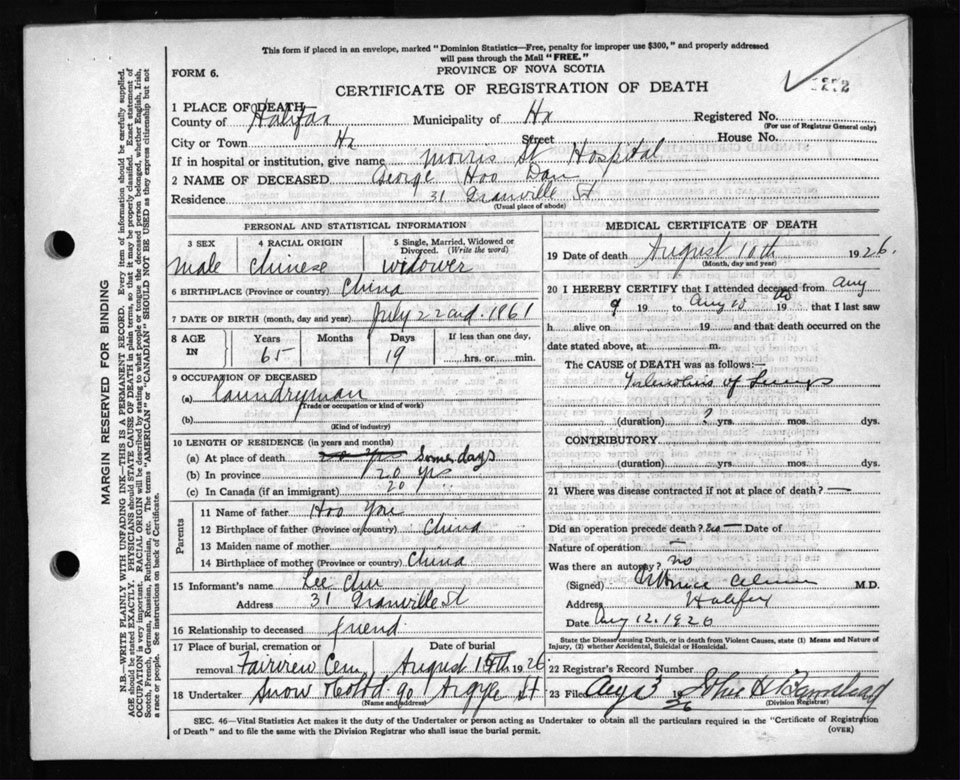 This form if placed in an envelope, marked "Dominion Statistics—Free, penalty for improper use $300," and properly addressed
will pass through the Mail "FREE."
PROVINCE OF NOVA SCOTIA
FORM 6.
CERTIFICATE OF REGISTRATION OF DEATH
1 PLACE OF DEATH
County of Halifax Municipality of Hx Registered No.
(For use of Registrar General only)
City or Town Hx Street House No.
If in hospital or institution, give name Morris St Hospital
2 NAME OF DECEASED George Hoo Don
Residence 31 Granville St
(Usual place of abode)
PERSONAL AND STATISTICAL INFORMATION
3 SEX 4 RACIAL ORIGIN 5 Single, Married, Widowed or Divorced. (Write the word)
Male Chinese Widower
6 BIRTHPLACE (Province or country) China
7 DATE OF BIRTH (month, day and year) July 22nd. 1861
8 AGE IN Years Months Days If less than one day,
65 19 hrs. or min.
9 OCCUPATION OF DECEASED
(a) Laundryman
(Trade or occupation or kind of work)
(b)
(Kind of industry)
10 LENGTH OF RESIDENCE (in years and months)
(a) At place of death 20 yrs Some days
(b) In province 20 yrs
(c) In Canada (if an immigrant) 20
Parents
11 Name of father Hoo You
12 Birthplace of father (Province or country) China
13 Maiden name of mother
14 Birthplace of mother (Province or country) China
15 Informant's name Lee Chu
Address 31 Granville St
16 Relationship to deceased friend
17 Place of burial, cremation or removal Date of burial
Fairview Cem August 1926
18 Undertaker Snow & Co Ltd. 90 Argyle St
(Name and address)
MEDICAL CERTIFICATE OF DEATH
19 Date of death August 10th 1926.
(Month, day and year)
20 I HEREBY CERTIFY that I attended deceased from Aug
9 19 to Aug 10 19 that I last saw
h alive on 19 and that death occurred on
date stated above, at m.
The CAUSE OF DEATH was as follows:—
Tuberculosis of Lungs
(duration) ? yrs. mos. dys.
CONTRIBUTORY
(duration) yrs. mos. dys.
21 Where was disease contracted if not at place of death?
Did an operation precede death? No Date of
Nature of operation —
Was there an autopsy? no
(Signed) M.D.
Address Halifax
Date Aug 12. 1926
State the Disease causing Death, or in death from Violent Causes, state (1) Means and Nature of
Injury, (2) whether Accidental, Suicidal or Homicidal.
22 Registrar's Record Number
23 Filed Aug 3 1926 John H Barnstead
(Division Registrar)
SEC. 46—Vital Statistics Act makes it the duty of the Undertaker or person acting as Undertaker to obtain all the particulars required in the "Certificate of Registration
of Death" and to file the same with the Division Registrar who shall issue the burial permit.
(OVER)
MARGIN RESERVED FOR BINDING
N.B.—WRITE PLAINLY WITH UNFADING INK—THIS IS A PERMANENT RECORD. Every item of information should be carefully supplied.
AGE should be stated EXACTLY. PHYSICIANS should STATE CAUSE OF DEATH in plain terms, so that it may be properly classified. Exact statement of
OCCUPATION is very important. RACIAL ORIGIN will be described by stating to what people or tongue the deceased person belonged, whether English, Irish,
Scotch, French, German, Russian, Ruthenian, etc. The terms "AMERICAN" or "CANADIAN" SHOULD NOT BE USED as they express citizenship but not
a race or people. See instructions on back of Certificate.